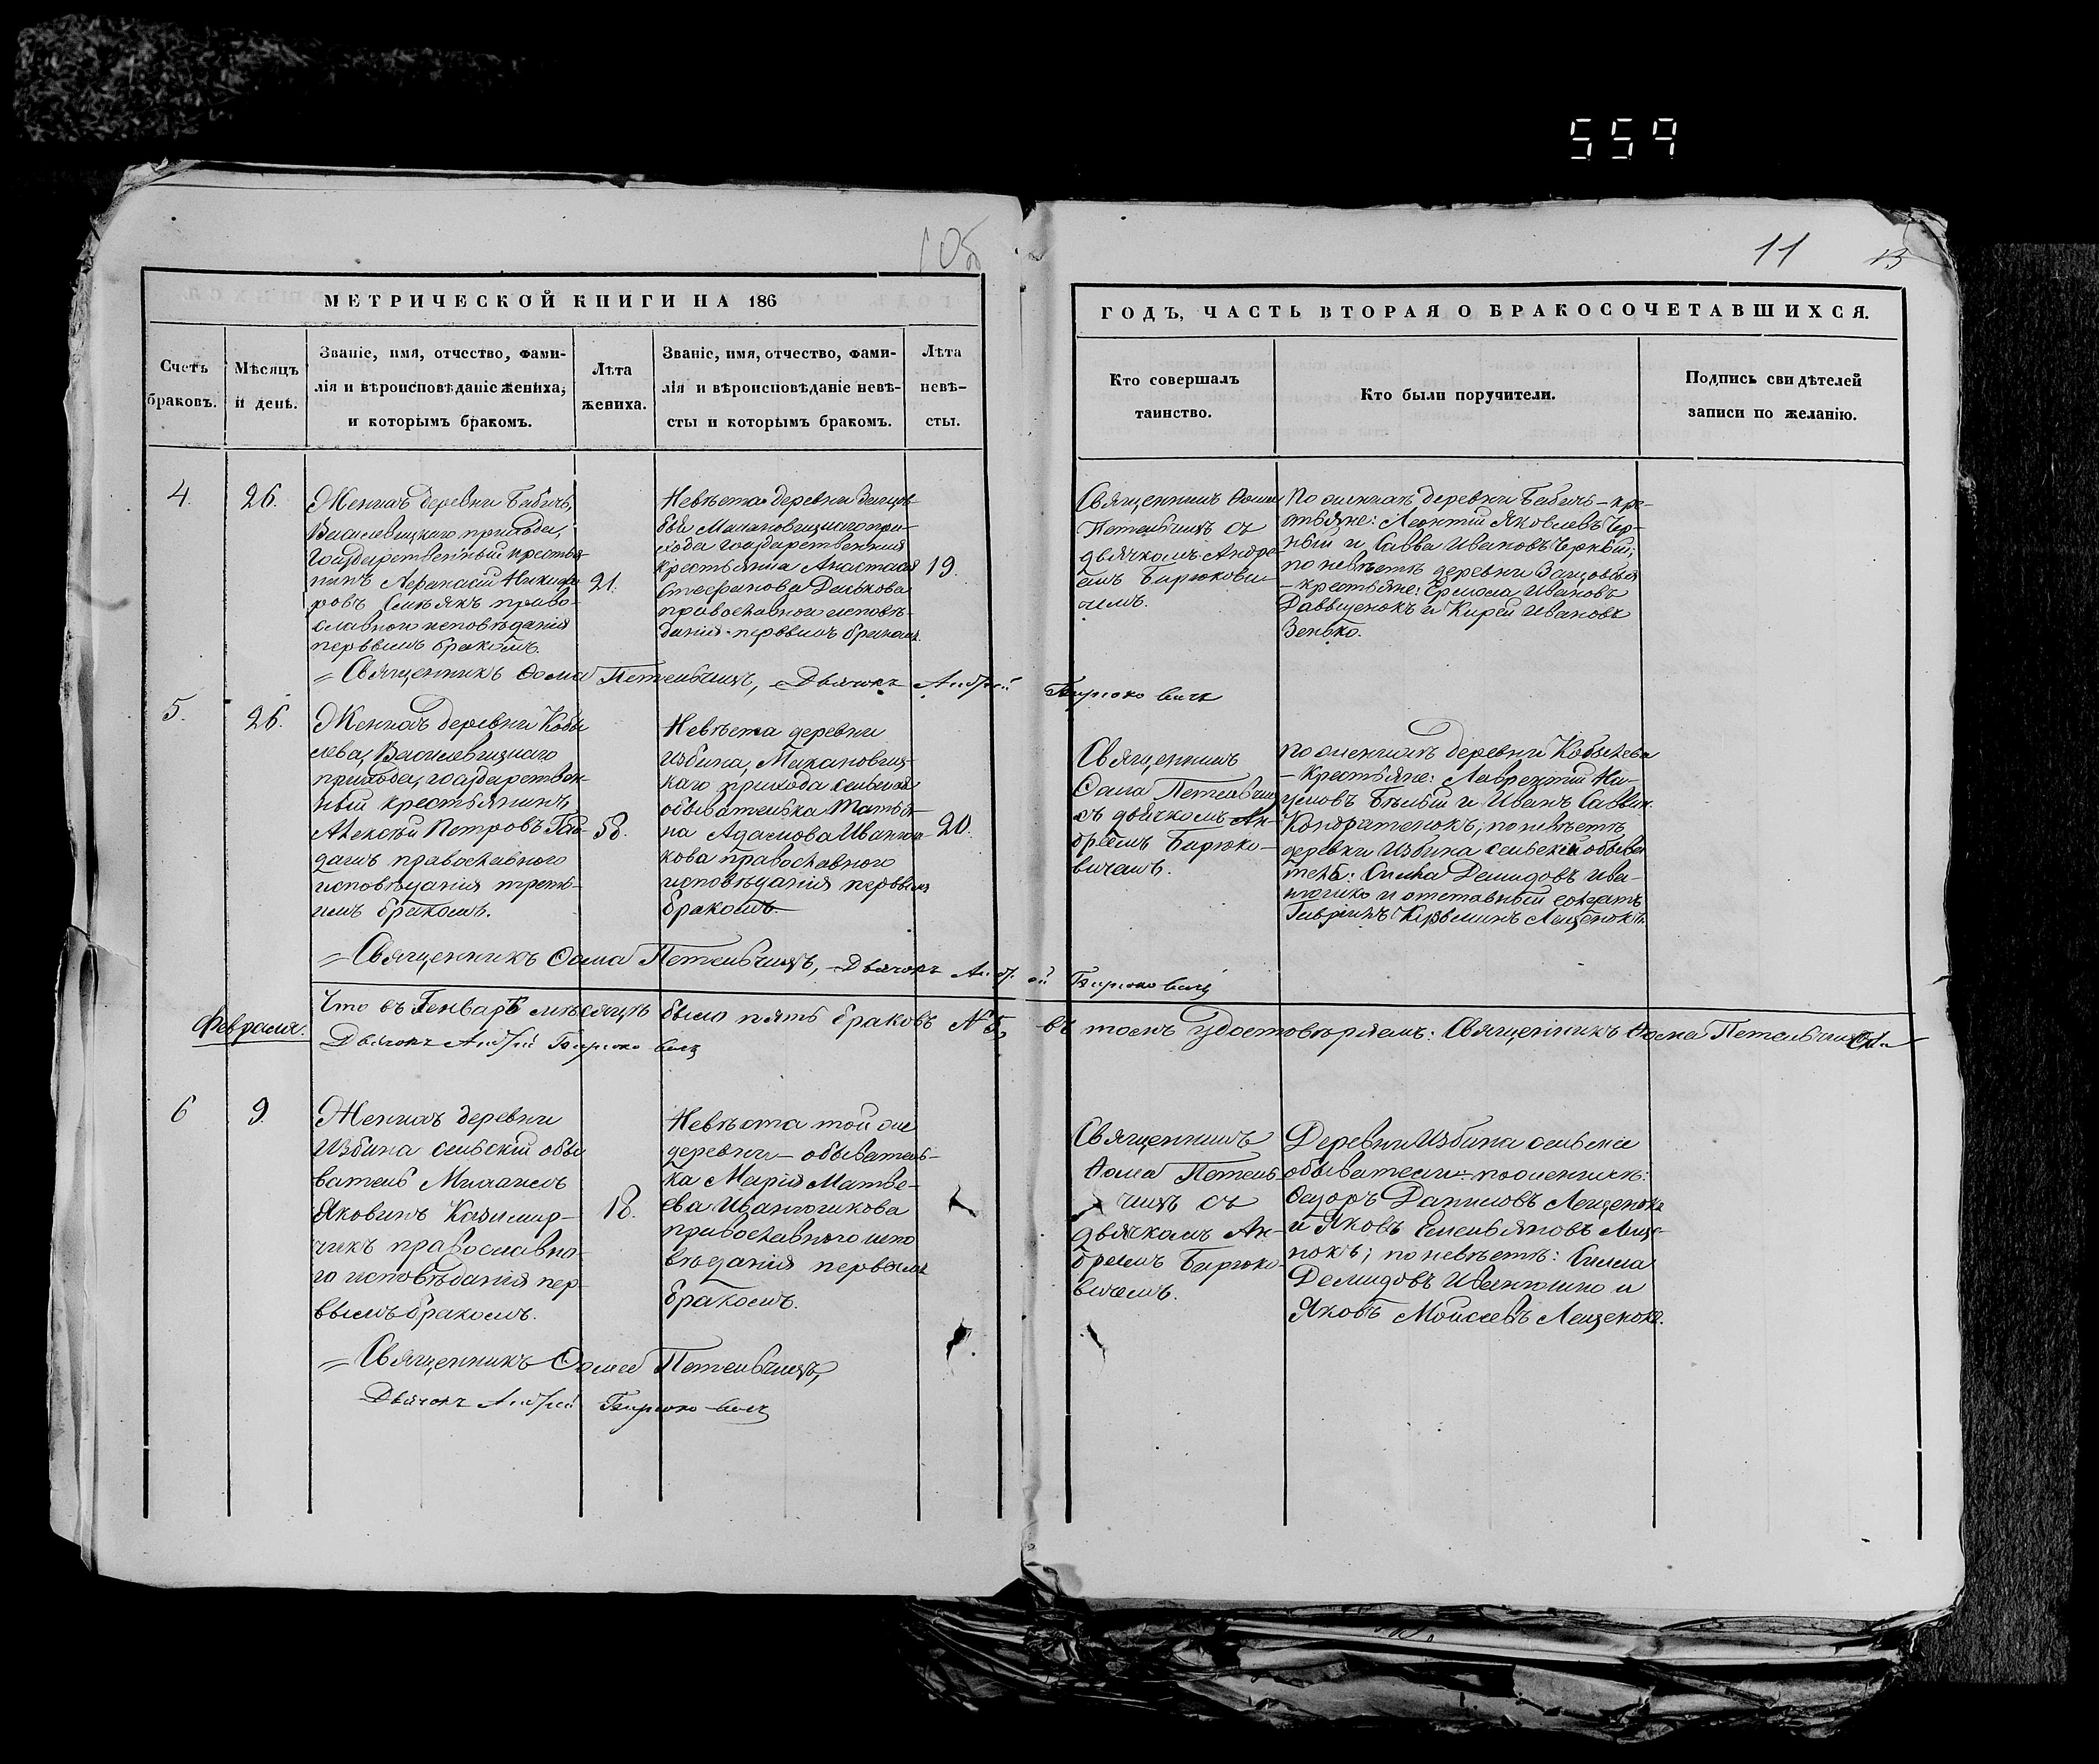 559
105
11
МЕТРИЧЕСКОЙ КНИГИ НА 186
ГОДЪ, ЧАСТЬ ВТОРАЯ О БРАКОСОЧЕТАВШИХСЯ.
Счетъ
браковъ.
Мѣсяцъ
и день.
Званіе, имя, отчество, фами-
лія и вѣроисповѣданіе жениха,
и которымъ бракомъ.
Лѣта
жениха.
Званіе, имя, отчество, фами-
лія и вѣроисповѣданіе невѣ-
сты и которымъ бракомъ.
Лѣта
невѣ-
сты.
Кто совершалъ
таинство.
Кто были поручители.
Подпись свидѣтелей
записи по желанію.
4.
26.
Женихъ деревни Бабичъ,
Василевицкаго прихода,
Государственный крестья-
нинъ Афанасій Никифо
ровъ право-
славнои исповѣданія
первымъ бракомъ.
21.
Невѣста деревни
прихода государственная
крестьянка Анастасія
Стефанова Данькова
православнои исповѣ-
данія первымъ бракомъ.
19.
Священникъ Ѳома
Петельчицъ съ
дьячкомъ Андре
емъ Бирюкови-
чемъ.
По женихѣ деревни Бабичъ – кре-
стьяне: Леонтій Яковлевъ Чер-
ный и Савва Ивановъ Черный;
по невѣстѣ деревни
– крестьяне: Ермола Ивановъ
и Кирей Ивановъ
Зенько.
Священникъ Ѳома Петельчицъ, Дьячокъ Андрей Бирюковичъ
5.
26.
Женихъ деревни Кобы
лева, Василевицкаго
прихода, государствен-
ный крестьянинъ
Алексѣй Петровъ Гай-
дашъ православного
исповѣданія треть-
имъ бракомъ.
58.
Невѣста деревни
Избина,
каго прихода сельская
обывателька Матрё-
на Адамова Иваню-
кова православного
исповѣданія первымъ
бракомъ.
20.
Священникъ
Ѳома Петельчиц
съ дьячкомъ Ан-
дреемъ Бирюко-
вичемъ.
По женихѣ деревни Кобылева
– крестьяне: Лаврентій На-
умовъ Бѣлый и Иванъ Саввин.
Кондратенокъ; по невѣстѣ
деревни Избина сельскій обыва
тель: Симка Демидовъ Ива-
нюшко и отставный солдатъ
Гаврилъ Лещенокъ.
Священникъ Ѳома Петельчицъ, Дьячокъ Андрей Бирюковичъ
Что въ Генварѣ мѣсяцѣ было пять браковъ № 5, въ томъ удостовѣряемъ: Священникъ Ѳома Петельчицъ
Дьячокъ Андрей Бирюковичъ
Февраль.
6
9.
Женихъ деревни
Избина сельскій обы
ватель Михаилъ
Яковинъ Казимир-
чикъ православна-
го исповѣданія пер-
вымъ бракомъ.
18.
Невѣста той же
деревни – обыватель-
ка Марія Матве-
ева Иванюшкова
православного испо
вѣданія первымъ
бракомъ.
Священникъ
Ѳома Петель-
чицъ съ
дьячкомъ Ан-
дреемъ Бирюко-
вичемъ.
Деревни Избина сельскіе
обыватели – по женихѣ:
Ѳедоръ Даниловъ Лещенокъ
и Яковъ Емельяновъ Леще-
нокъ; по невѣстѣ: Симка
Демидовъ Иванюшко и
Яковъ Мойсеевъ Лещенокъ.
Священникъ Ѳома Петельчицъ,
Дьячокъ Андрей Бирюковичъ